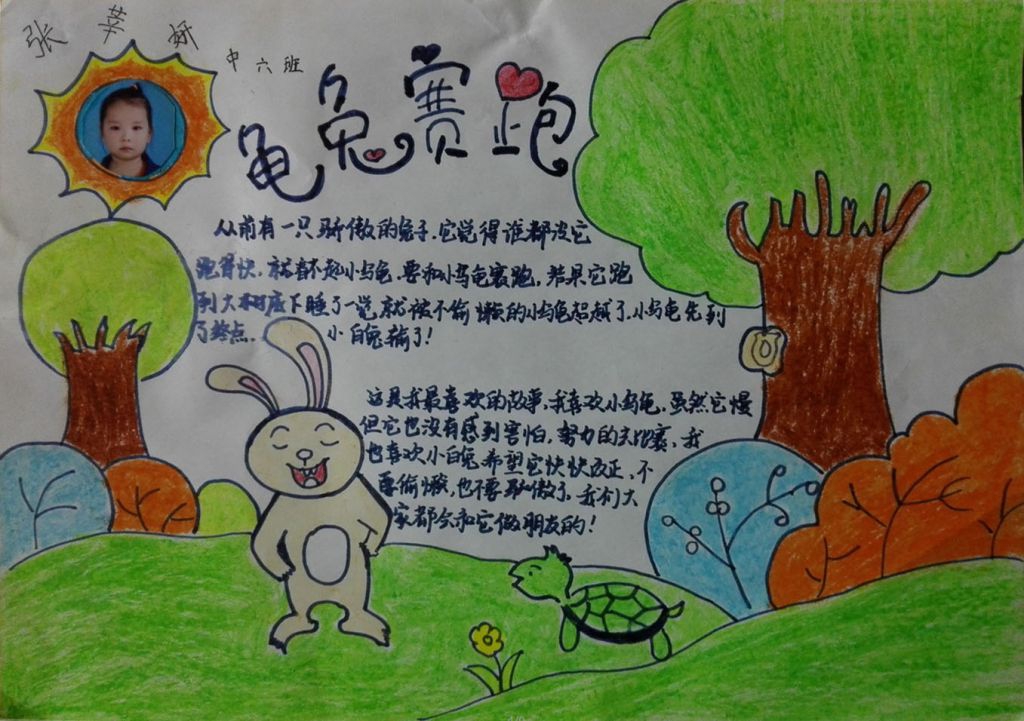 张莘妍
中六班
龟兔赛跑
从前有一只骄傲的兔子,它觉得谁都没它
跑得快,就看不起小乌龟,要和小乌龟赛跑,结果它跑
到大树底下睡了一觉,就被不偷懒的小乌龟超越了,小乌龟先到
了终点,小白兔输了!
这是我最喜欢的故事,我喜欢小乌龟,虽然它慢
但它也没有感到害怕,努力的去比赛,我
也喜欢小白兔,希望它快快改正,不
要偷懒,也不要骄傲了,我们大
家都会和它做朋友的!